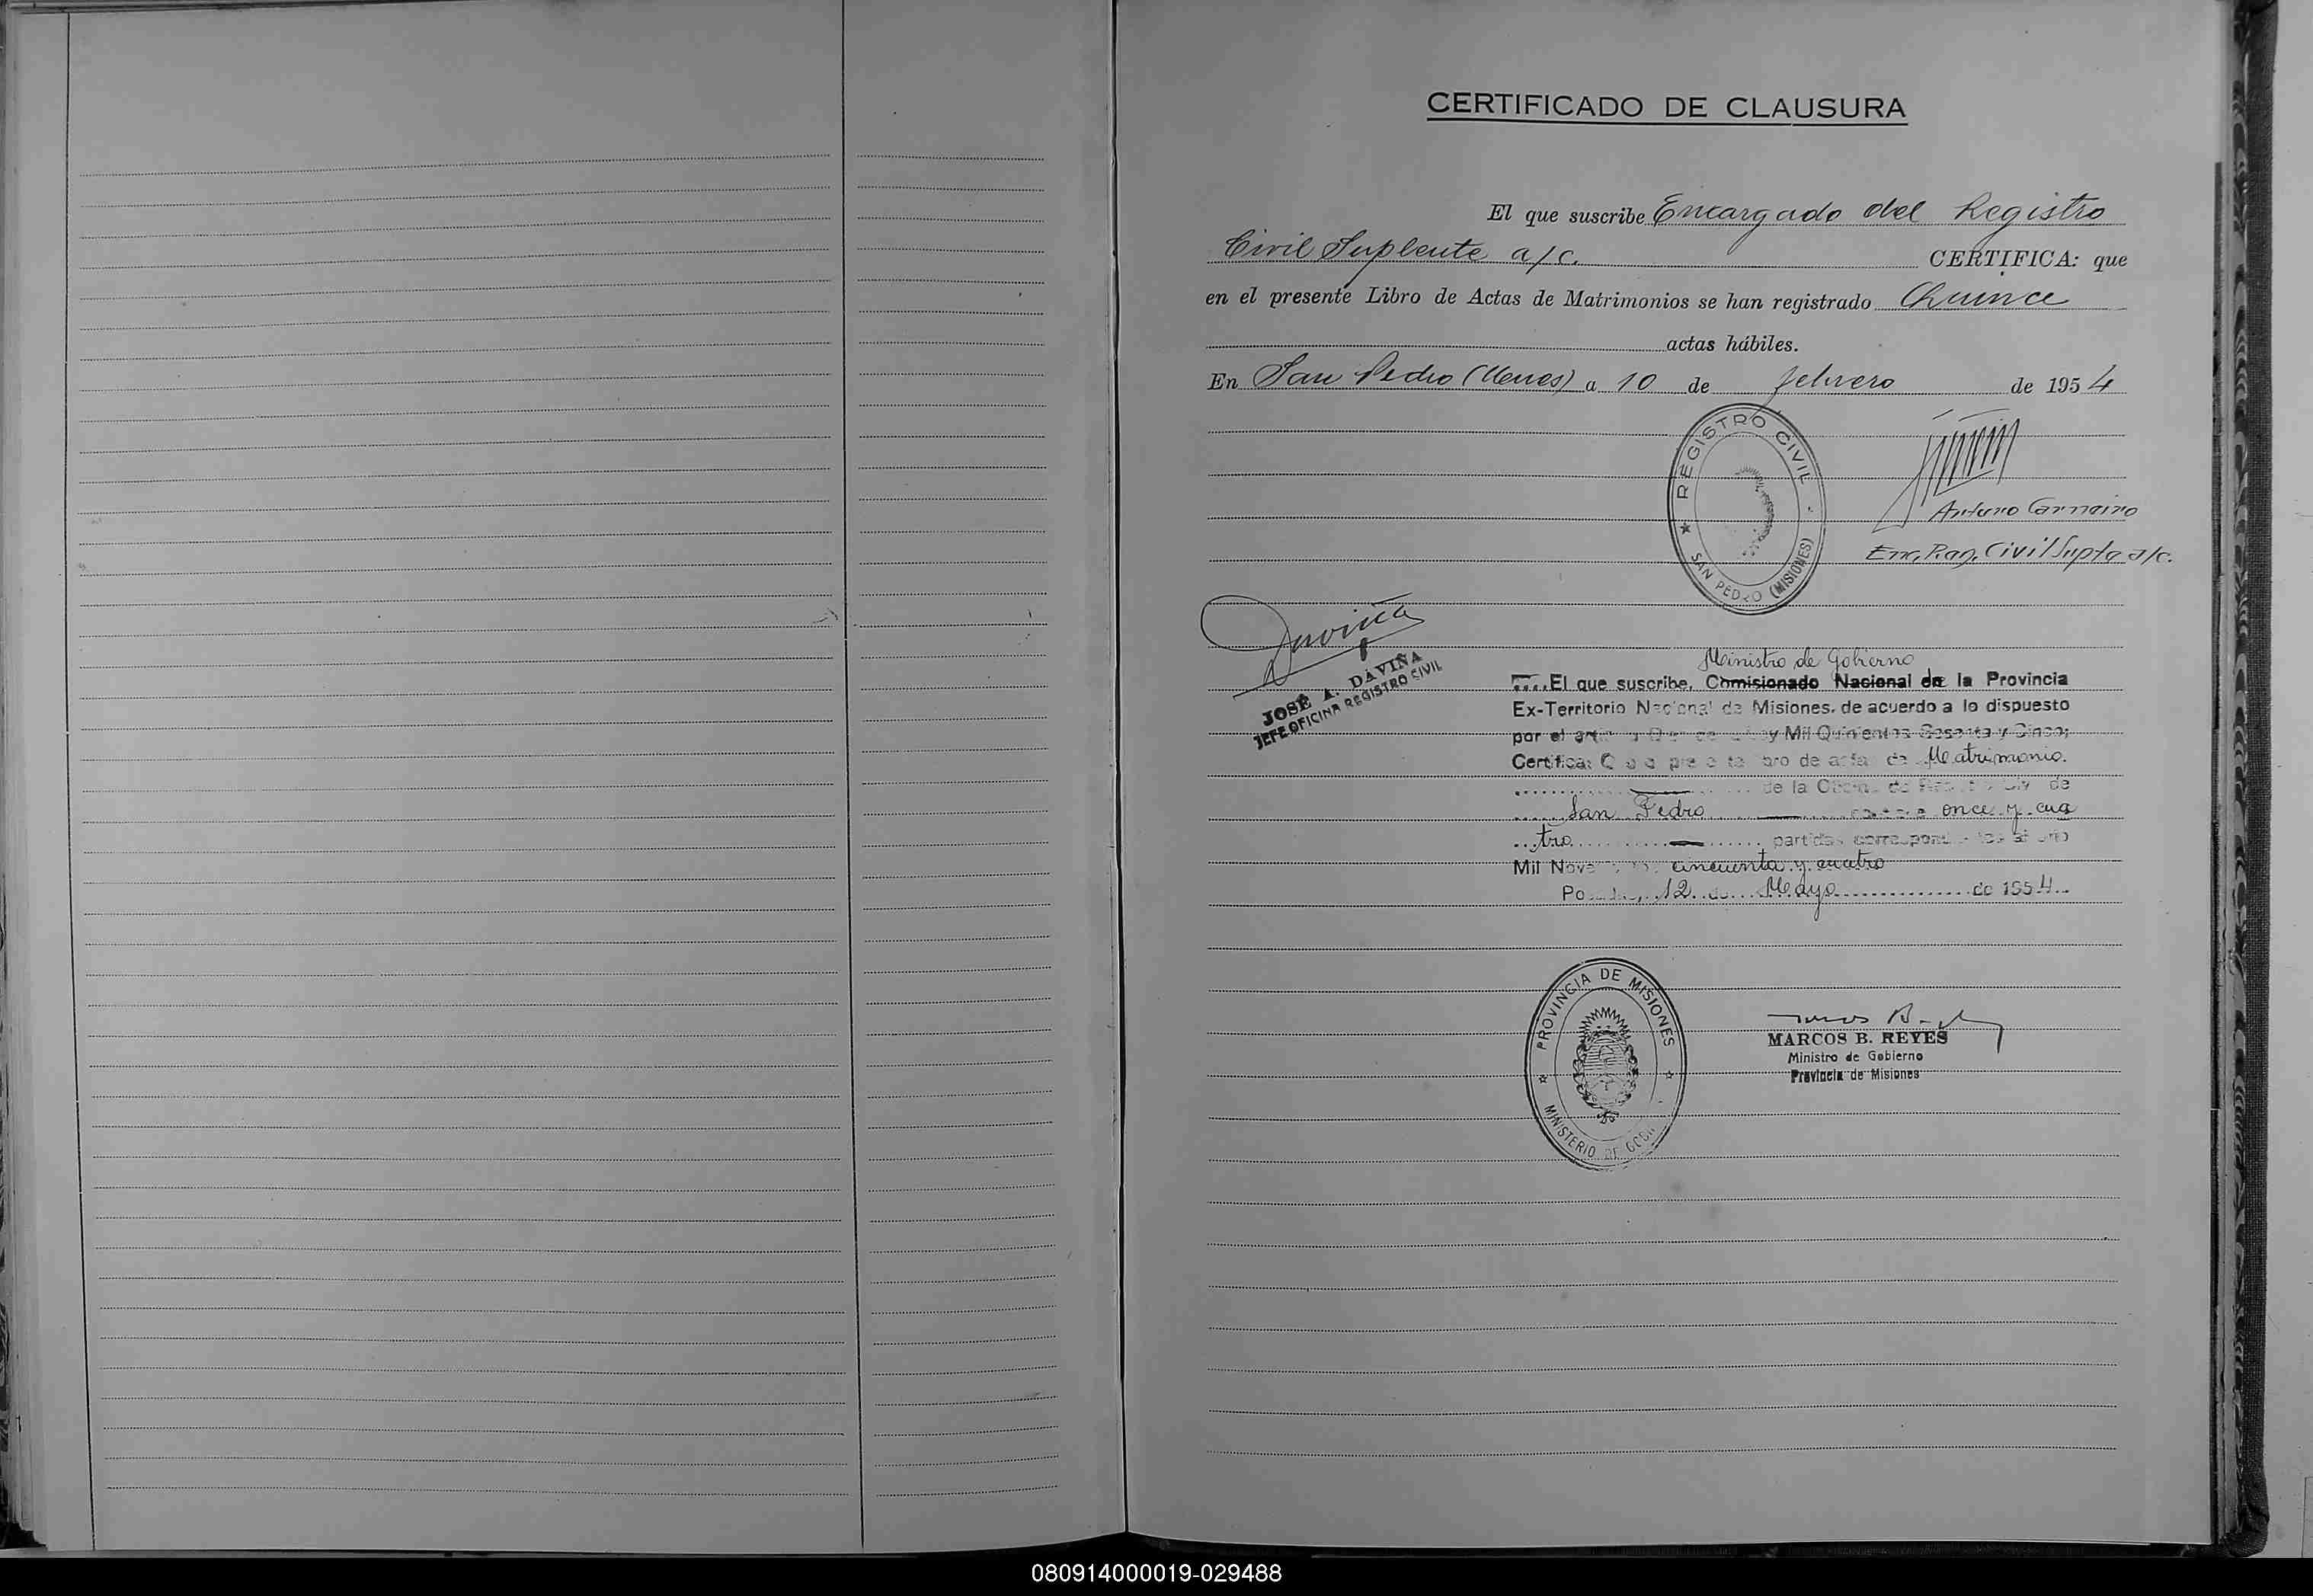 CERTIFICADO DE CLAUSURA
El que suscribe Encargado del Registro
Civil Suplente a/c. CERTIFICA: que
en el presente Libro de Actas de Matrimonios se han registrado Quince
actas hábiles.
En San Pedro (Mnes) a 10 de febrero de 1954
REGISTRO CIVIL
SAN PEDRO (MISIONES)
Arturo Carneiro
Enc, Reg, Civil Supte a/c.
Daviña
JOSÉ A. DAVIÑA
JEFE OFICINA REGISTRO CIVIL
Ministro de Gobierno
El que suscribe, Comisionado Nacional de la Provincia
Ex-Territorio Nacional de Misiones, de acuerdo a lo dispuesto
por el Mil Quinientos Sesenta y Cinco;
Certifica: de acta de Matrimonio.
de la de
San Pedro once y cua
tro partidas
Mil cincuenta y cuatro
12 de Mayo de 1954
PROVINCIA DE MISIONES
MINISTERIO DE
MARCOS B. REYES
Ministro de Gobierno
Provincia de Misiones
080914000019-029488